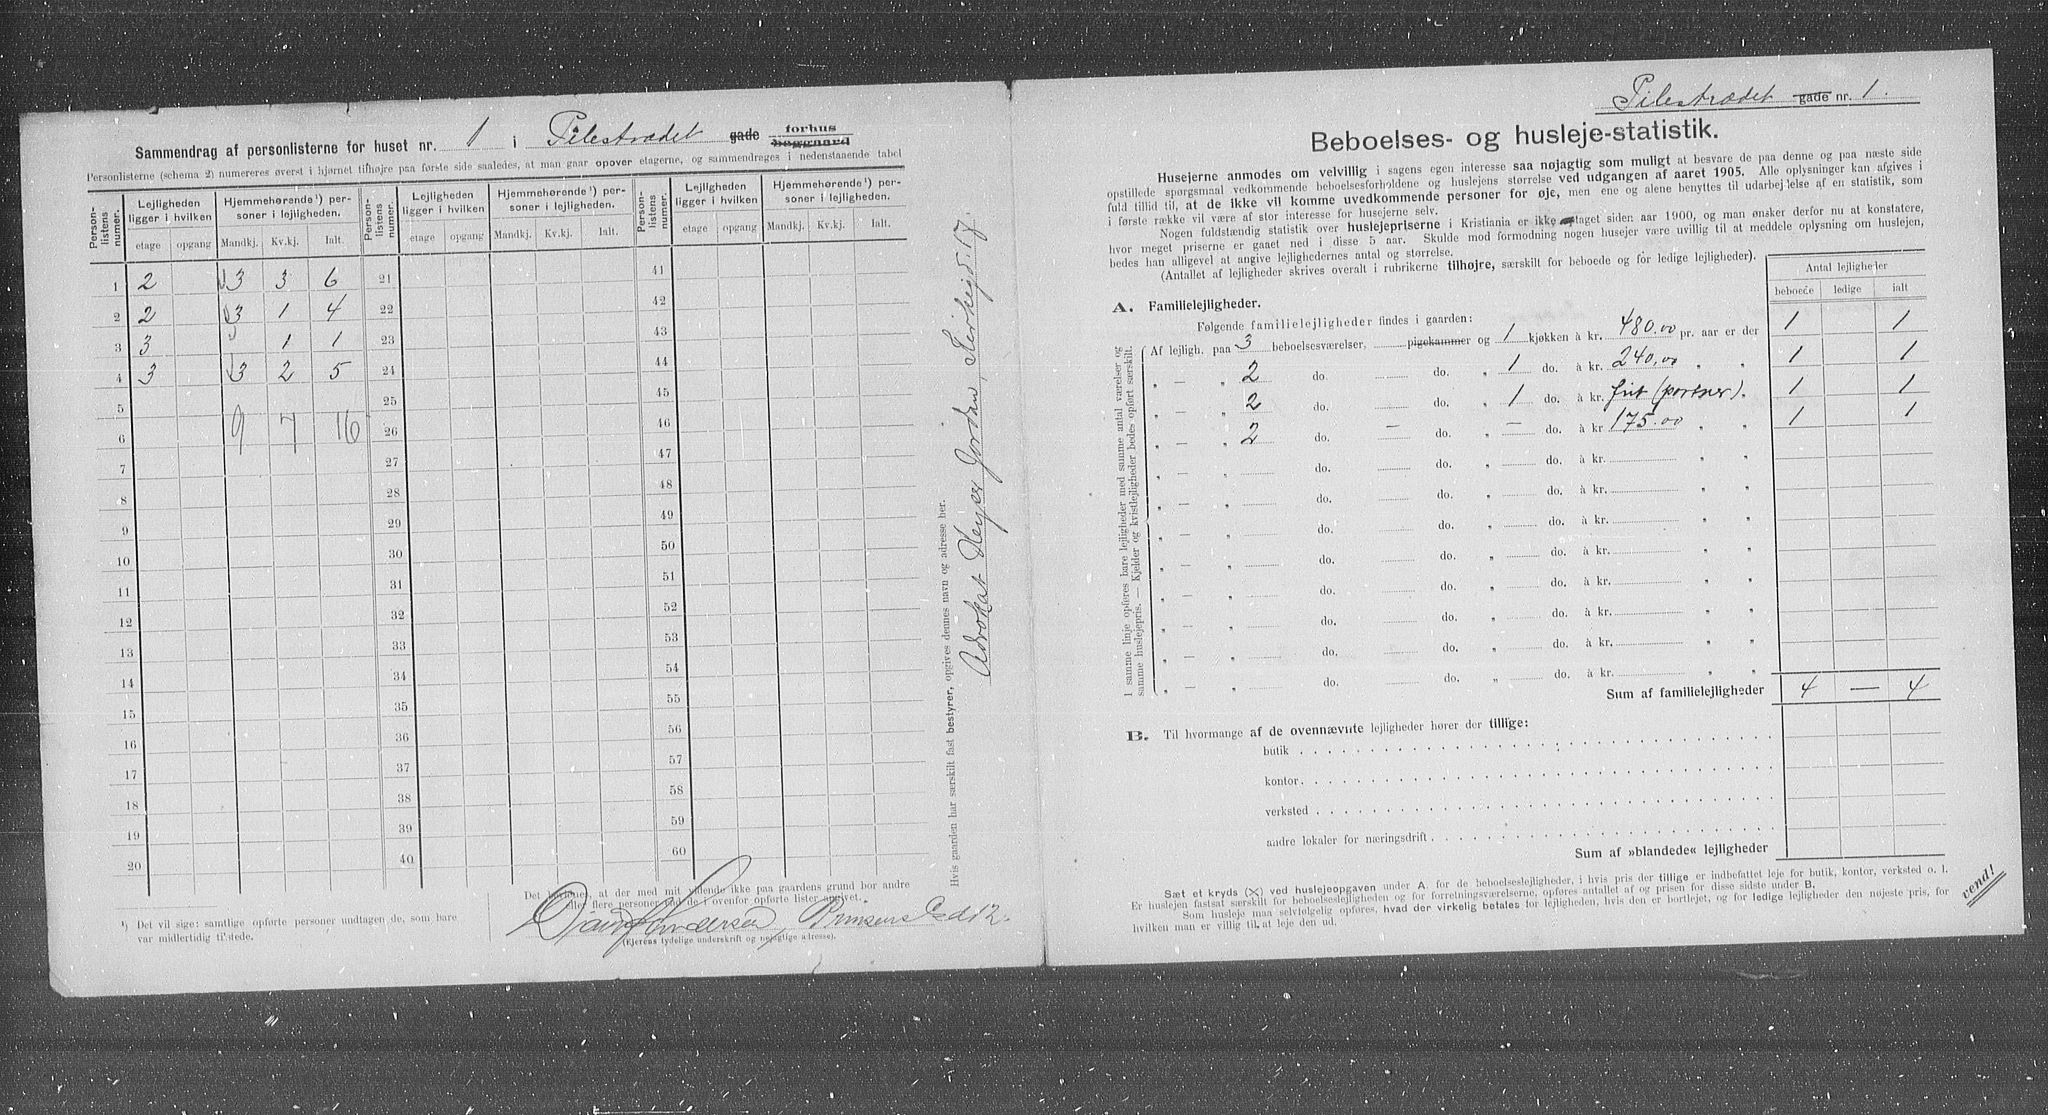 Sammendrag af personlisterne for huset nr. 1 i Pilestrædet gade forhus
beggaard
Personlisterne (schema 2) numereres øverst i hjørnet tilhøjre paa første side saaledes, at man gaar opover etagerne, og sammendrages i nedenstaaende tabel
Person-listens numer. Lejligheden ligger i hvilken Hjemmehørende¹) personer i lejligheden. Person-listens numer. Lejligheden ligger i hvilken Hjemmehørende¹) personer i lejligheden. Person-listens numer. Lejligheden ligger i hvilken Hjemmehørende¹) personer i lejligheden.
etage opgang Mandkj. Kv.kj. Ialt. etage opgang Mandkj. Kv.kj. Ialt. etage opgang Mandkj. Kv.kj. Ialt.
1 2 3 3 6 21 41
2 2 3 1 4 22 42
3 3 1 1 23 43
4 3 3 2 5 24 44
5 25 45
6 9 7 16 26 46
7 27 47
8 28 48
9 29 49
10 30 50
11 31 51
12 32 52
13 33 53
14 34 54
15 35 55
16 36 56
17 37 57
18 38 58
19 39 59
20 40 60
¹) Det vil sige: samtlige opførte personer undtagen de, som bare
var midlertidig tilstede.
Det bevidnes, at der med mit vidende ikke paa gaardens grund bor andre
eller flere personer end de i ovenfor opførte lister angivet.
Andersen, Prinsens Gd 12.
(Ejerens tydelige underskrift og nøjagtige adresse).
Hvis gaarden har særskilt fast bestyrer, opgives dennes navn og adresse her.
Advokat Heyerdahl
Pilestrædet gade nr. 1.
Beboelses- og husleje-statistik.
Husejerne anmodes om velvillig i sagens egen interesse saa nøjagtig som muligt at besvare de paa denne og paa næste side
opstillede spørgsmaal vedkommende beboelsesforholdene og huslejens størrelse ved udgangen af aaret 1905. Alle oplysninger kan afgives i
fuld tillid til, at de ikke vil komme uvedkommende personer for øje, men ene og alene benyttes til udarbejdelse af en statistik, som
i første række vil være af stor interesse for husejerne selv.
Nogen fuldstændig statistik over huslejepriserne i Kristiania er ikke optaget siden aar 1900, og man ønsker derfor nu at konstatere,
hvor meget priserne er gaaet ned i disse 5 aar. Skulde mod formodning nogen husejer være uvillig til at meddele oplysning om huslejen,
bedes han alligevel at angive lejlighedernes antal og størrelse.
(Antallet af lejligheder skrives overalt i rubrikerne tilhøjre, særskilt for beboede og for ledige lejligheder).
Antal lejligheder
beboede ledige ialt
A. Familielejligheder.
Følgende familielejligheder findes i gaarden:
Af lejligh. paa 3 beboelsesværelser, pigekammer og 1 kjøkken à kr. 480.00 pr. aar er der 1 1
" — " 2 do. do. " 1 do. à kr. 240.00 " " 1 1
" — " 2 do. do. " 1 do. à kr. frit (portner). 1 1
" — " 2 do. – do. " – do. à kr. 175.00 " " 1 1
" — " do. do. " do. à kr. " "
" — " do. do. " do. à kr. " "
" — " do. do. " do. à kr. " "
" — " do. do. " do. à kr. " "
" — " do. do. " do. à kr. " "
" — " do. do. " do. à kr. " "
" — " do. do. " do. à kr. " "
" — " do. do. " do. à kr. " "
I samme linje opføres bare lejligheder med samme antal værelser og
samme huslejepris. — Kjelder og kvistlejligheder bedes opført særskilt.
Sum af familielejligheder 4 — 4
B. Til hvormange af de ovennævnte lejligheder hører der tillige:
butik
kontor
verksted
andre lokaler for næringsdrift
Sum af »blandede« lejligheder
Sæt et kryds (×) ved huslejeopgaven under A. for de beboelseslejligheder, i hvis pris der tillige er indbefattet leje for butik, kontor, verksted o. l.
Er huslejen fastsat særskilt for beboelseslejligheden og for forretningsværelserne, opføres antallet af og prisen for disse sidste under B.
Som husleje maa selvfølgelig opføres, hvad der virkelig betales for lejligheden, hvis den er bortlejet, og for ledige lejligheder den nøjeste pris, for
hvilken man er villig til at leje den ud.
vend!